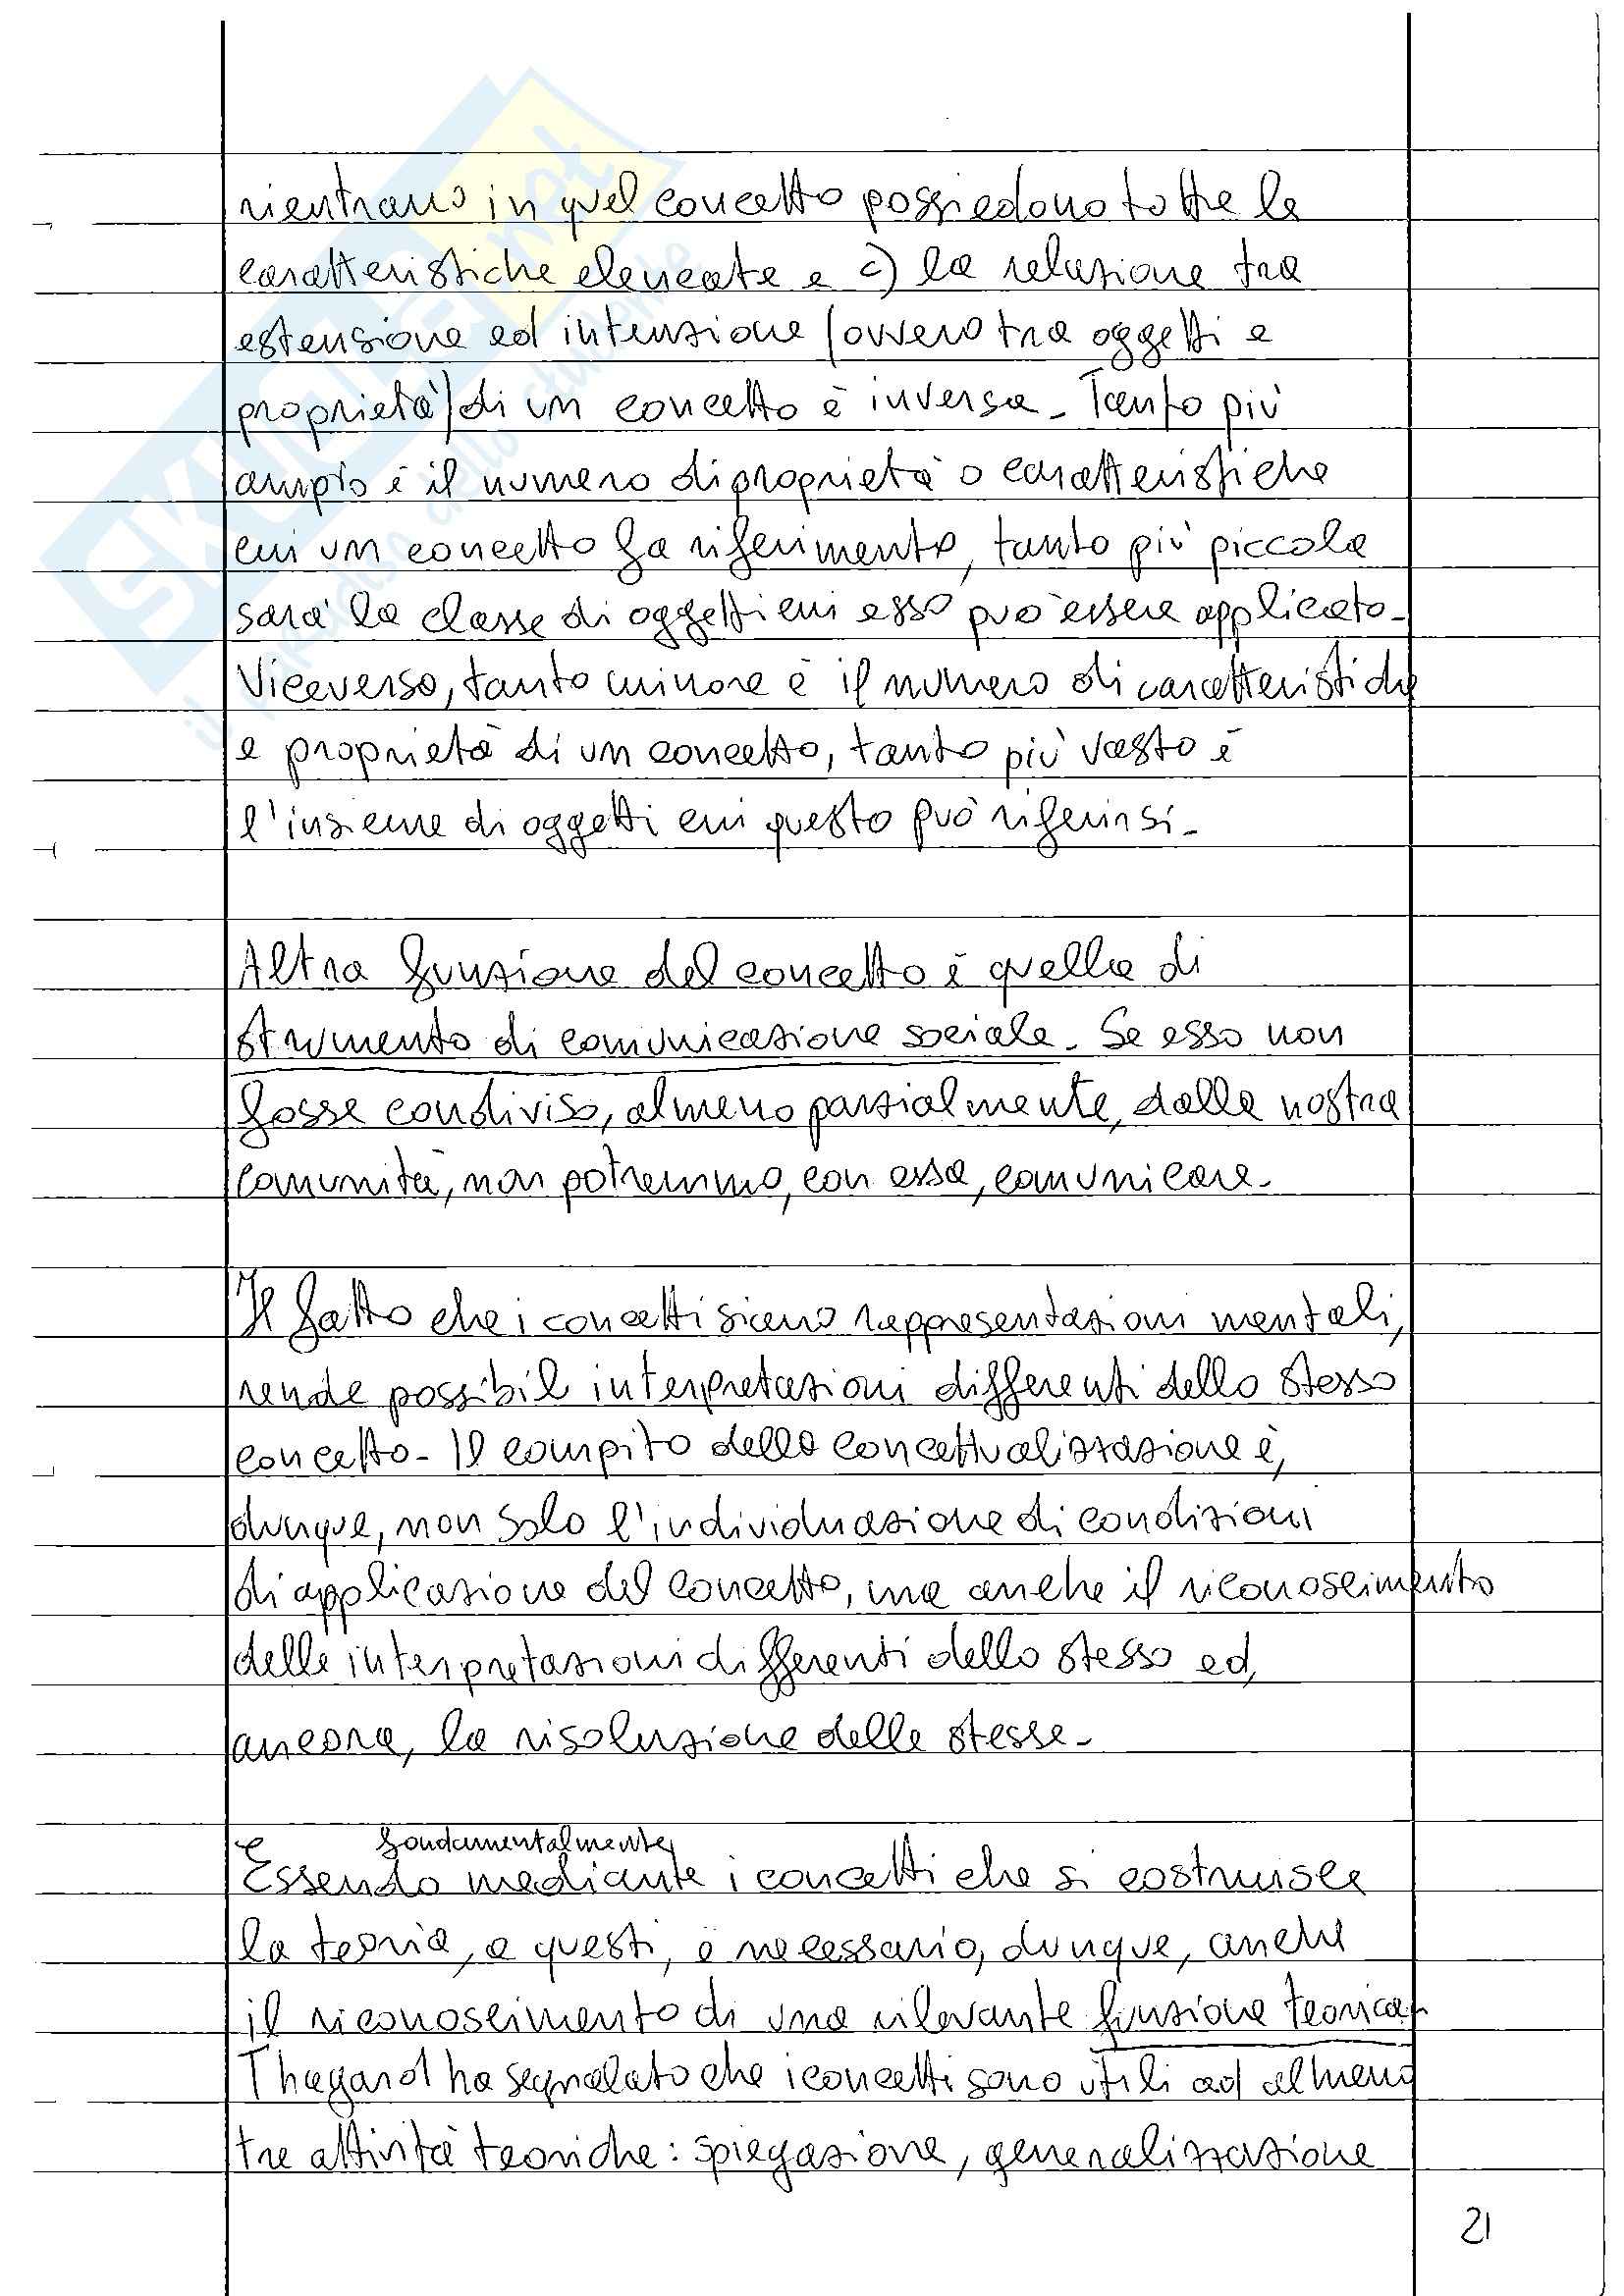 rientrano in quel concetto possiedono tutte le
caratteristiche elencate e c) la relazione tra
estensione ed intensione (ovvero tra oggetti e
proprietà) di un concetto è inversa. Tanto più
ampio è il numero di proprietà o caratteristiche
cui un concetto fa riferimento, tanto più piccola
sarà la classe di oggetti cui esso può essere applicato.
Viceversa, tanto minore è il numero di caratteristiche
e proprietà di un concetto, tanto più vasto è
l'insieme di oggetti cui questo può riferirsi.
Altra funzione del concetto è quella di
strumento di comunicazione sociale. Se esso non
fosse condiviso, almeno parzialmente, dalla nostra
comunità, non potremmo, con essa, comunicare.
Il fatto che i concetti siano rappresentazioni mentali,
rende possibil interpretazioni differenti dello stesso
concetto. Il compito della concettualizzazione è,
dunque, non solo l'individuazione di condizioni
di applicazione del concetto, ma anche il riconoscimento
delle interpretazioni differenti dello stesso ed,
ancora, la risoluzione delle stesse.
fondamentalmente
Essendo mediante i concetti che si costruisce
la teoria, a questi, è necessario, dunque, anche
il riconoscimento di una rilevante funzione teorica.
Thagard ha segnalato che i concetti sono utili ad almeno
tre attività teoriche: spiegazione, generalizzazione
21
SKUOLA.net
il paradiso dello studente